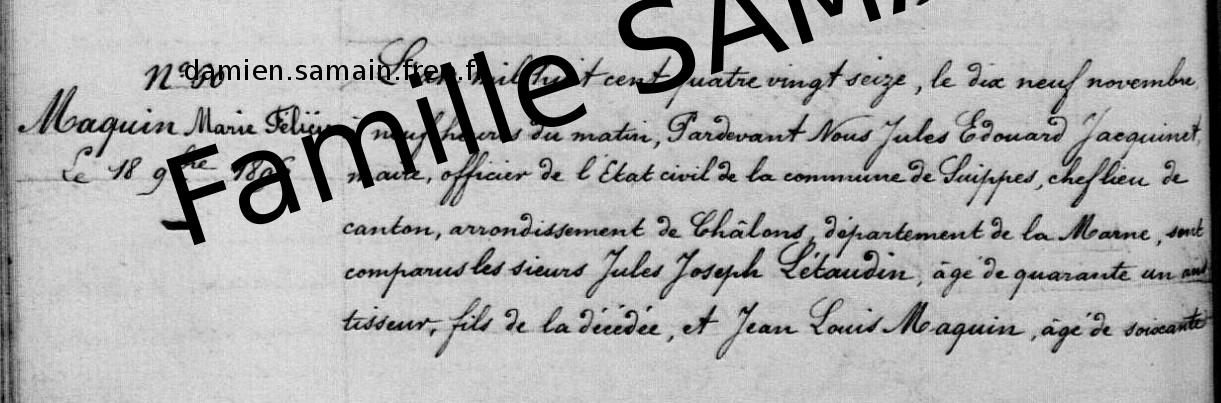 Famille SAMA
damien.samain.free.fr
N° 50
Maquin Marie Félicie
Le 18 9bre 1896
L'an mil huit cent quatre vingt seize, le dix neuf novembre,
à neuf heures du matin, Pardevant Nous Jules Edouard Jacquinet,
maire, officier de l'Etat civil de la commune de Suippes, chef lieu de
canton, arrondissement de Châlons, département de la Marne, sont
comparus les sieurs Jules Joseph Létaudin, âgé de quarante un ans
tisseur, fils de la décédée, et Jean Louis Maquin, âgé de soixante